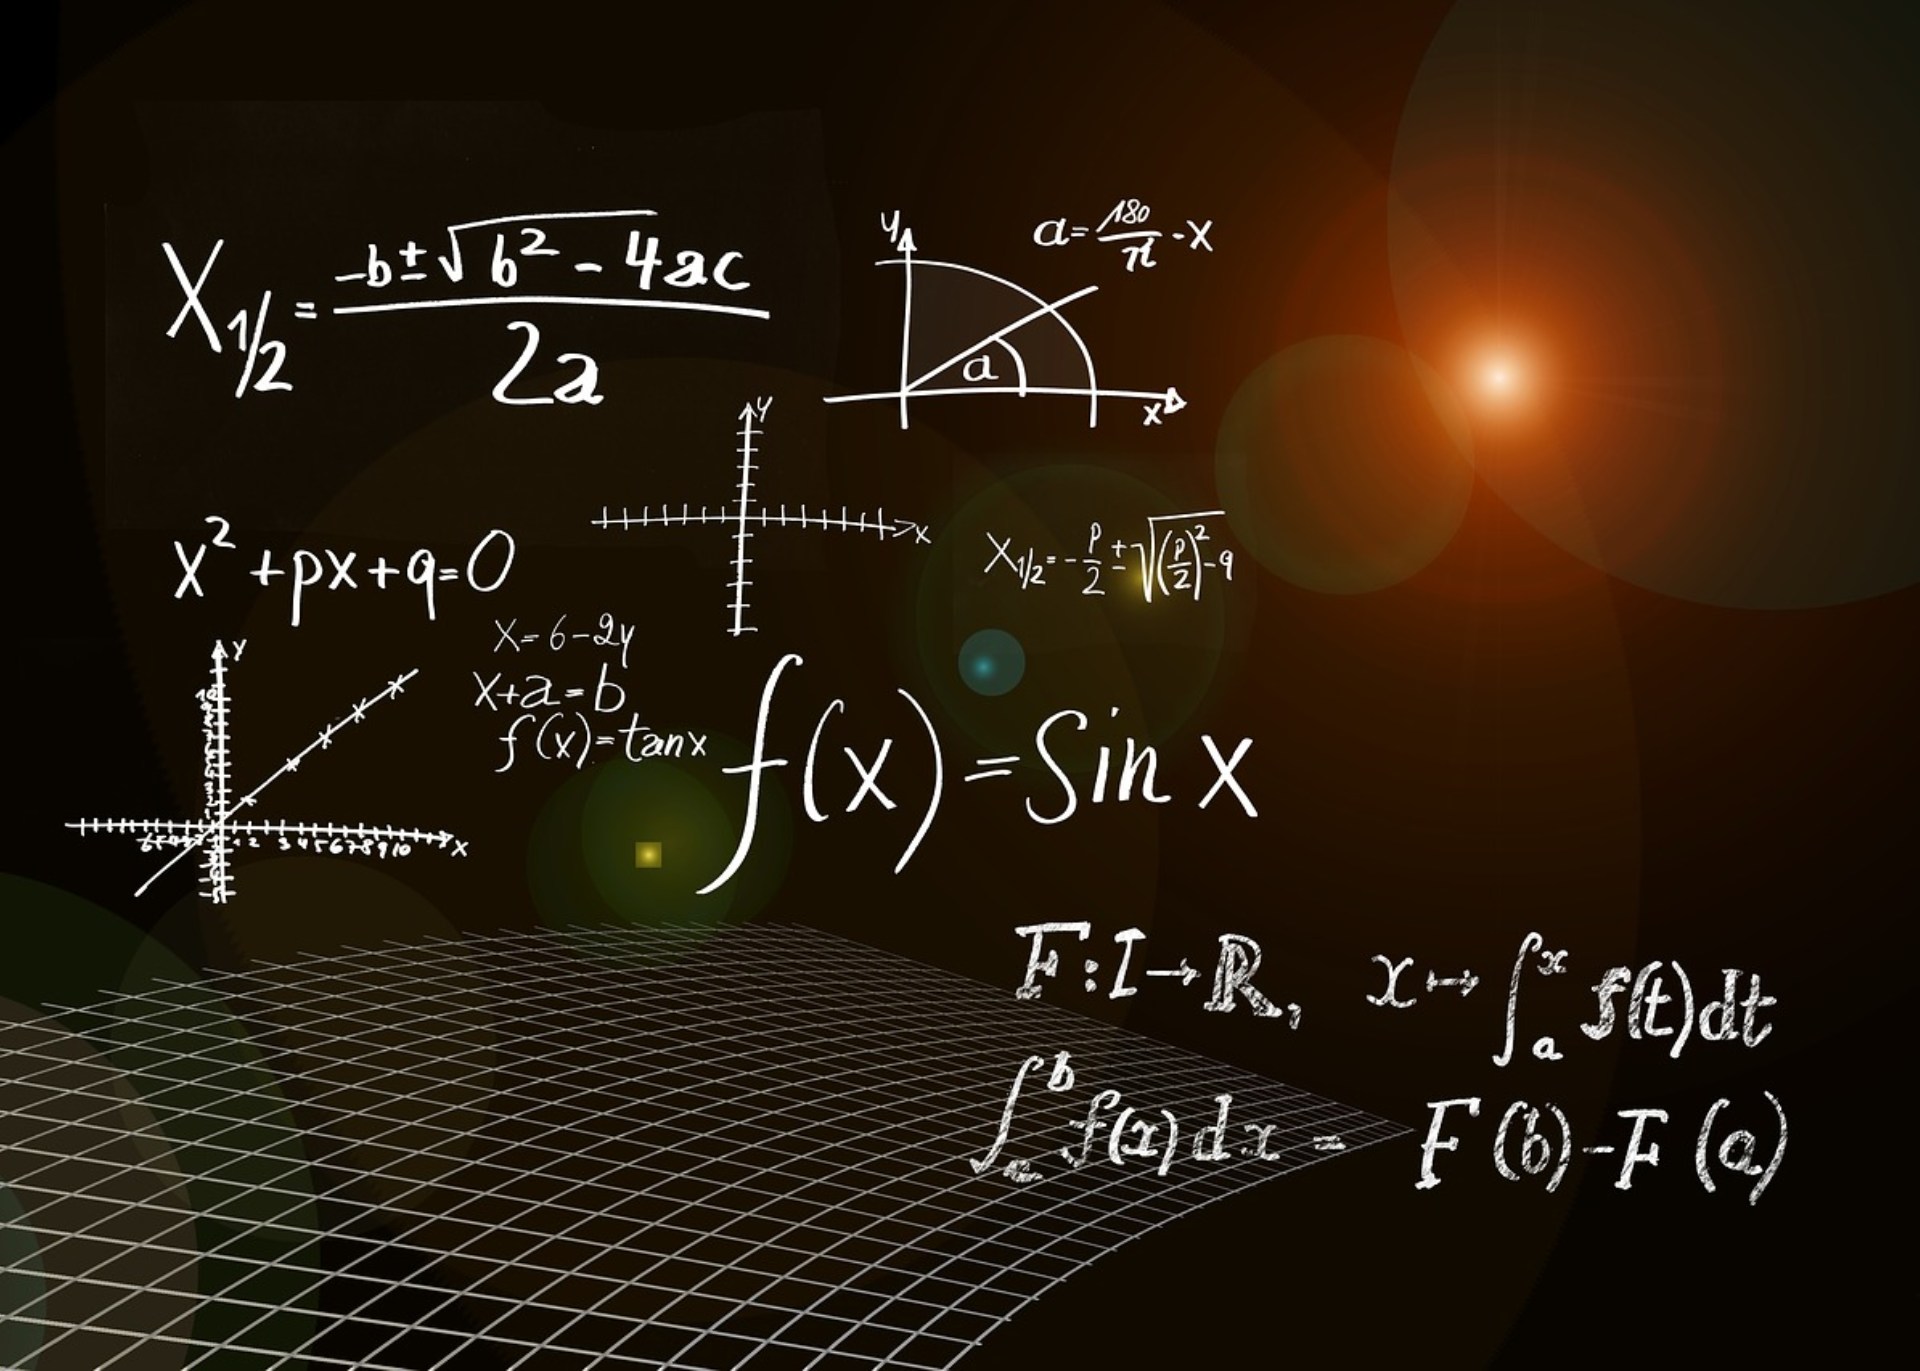 X₁/₂ = (-b ± √(b² - 4ac)) / 2a
y
a = 180/π - x
a
x
y
x
x² + px + q = 0
X₁/₂ = -p/2 ± √((p/2)² - q)
x = 6 - 2y
y
x + a = b
f(x) = tan x
f(x) = Sin x
10
1 2 3 4 5 6 7 8 9 10 x
F : I → ℝ, x ↦ ∫ₐˣ f(t) dt
∫ₐᵇ f(x) dx = F(b) - F(a)